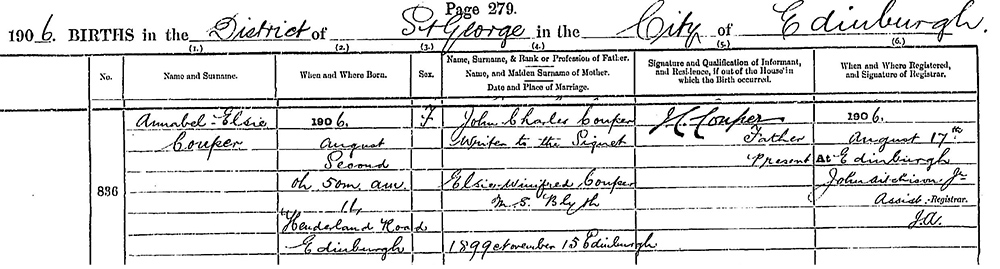 Page 279.
1906. BIRTHS in the District of St George in the City of Edinburgh.
(1.) (2.) (3.) (4.) (5.) (6.)
No.
Name and Surname.
When and Where Born.
Sex.
Name, Surname, & Rank or Profession of Father.
Name, and Maiden Surname of Mother.
Date and Place of Marriage.
Signature and Qualification of Informant,
and Residence, if out of the House in
which the Birth occurred.
When and Where Registered,
and Signature of Registrar.
836
Annabel Elsie
Couper
1906.
August
Second
0h. 50m. a.m.
Henderland Road
Edinburgh
F
John Charles Couper
Writer to the Signet
Elsie Winifred Couper
M.S. Blyth
1899 November 15 Edinburgh
J C Couper
Father
Present
1906.
August 17th
At Edinburgh
John Aitchison Jr
Assist. Registrar.
J.A.